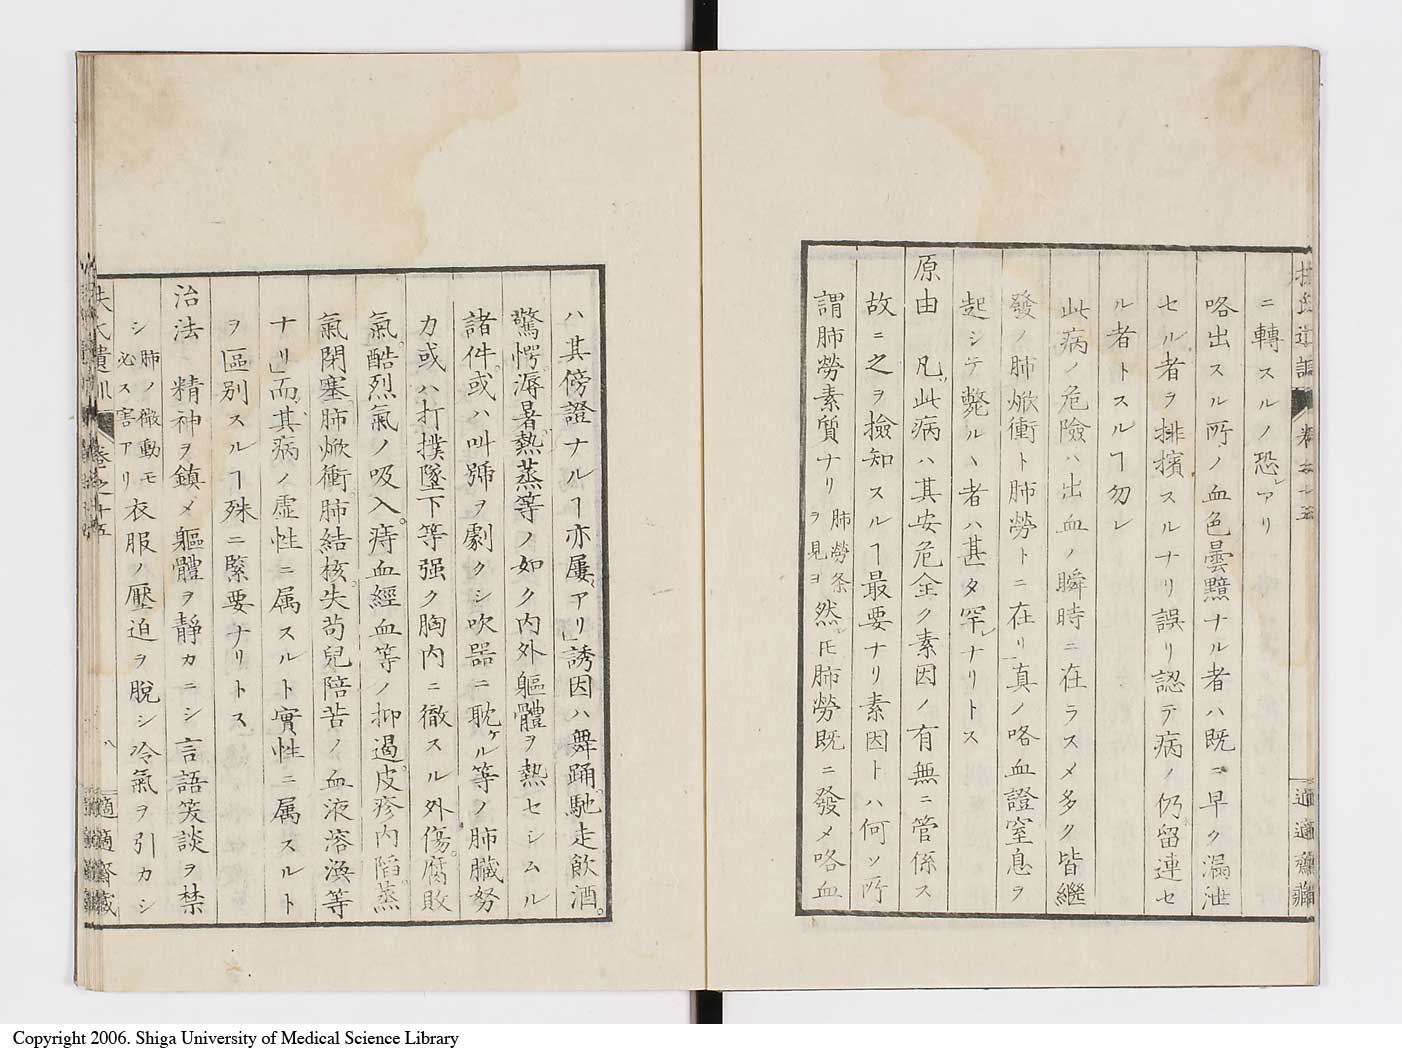 ニ轉スルノ恐レアリ
咯出スル所ノ血色曇黯ナル者ハ既ニ早ク漏泄
セル者ヲ排擯スルナリ誤リ認テ病ノ仍留連セ
ル者トスルヿ勿レ
此病ノ危險ハ出血ノ瞬時ニ在ラスメ多ク皆繼
發ノ肺焮衝ト肺勞トニ在リ真ノ咯血證窒息ヲ
起シテ斃ルヽ者ハ甚タ罕レナリトス
原由 凡ソ此病ハ其安危全ク素因ノ有無ニ管係ス
故ニ之ヲ撿知スルヿ最要ナリ素因トハ何ソ所
謂肺勞素質ナリ
肺勞条
ヲ見ヨ
然𪜈肺勞既ニ發メ咯血
ハ其傍證ナルヿ亦屢〻アリ」誘因ハ舞踊馳走飲酒。
驚愕。溽暑熱蒸等ノ如ク内外軀體ヲ熱セシムル
諸件。或ハ叫號ヲ劇クシ吹器ニ耽ケル等ノ肺臓努
力或ハ打撲墜下等强ク胸内ニ徹スル外傷。腐敗
氣。酷烈氣ノ吸入。痔血經血等ノ抑遏。皮疹内陷。蒸
氣閉塞。肺焮衝。肺結核。失苟兒陪苦ノ血液溶渙等
ナリ」而〆其病ノ虚性ニ属スルト實性ニ属スルト
ヲ區别スルヿ殊ニ緊要ナリトス
治法 精神ヲ鎮メ軀體ヲ靜カニシ言語笑談ヲ禁
シ
肺ノ微動モ
必ス害アリ
衣服ノ壓迫ヲ脫シ冷氣ヲ引カシ
扶氏遺訓 卷之十五
八
適適齋藏
Copyright 2006. Shiga University of Medical Science Library